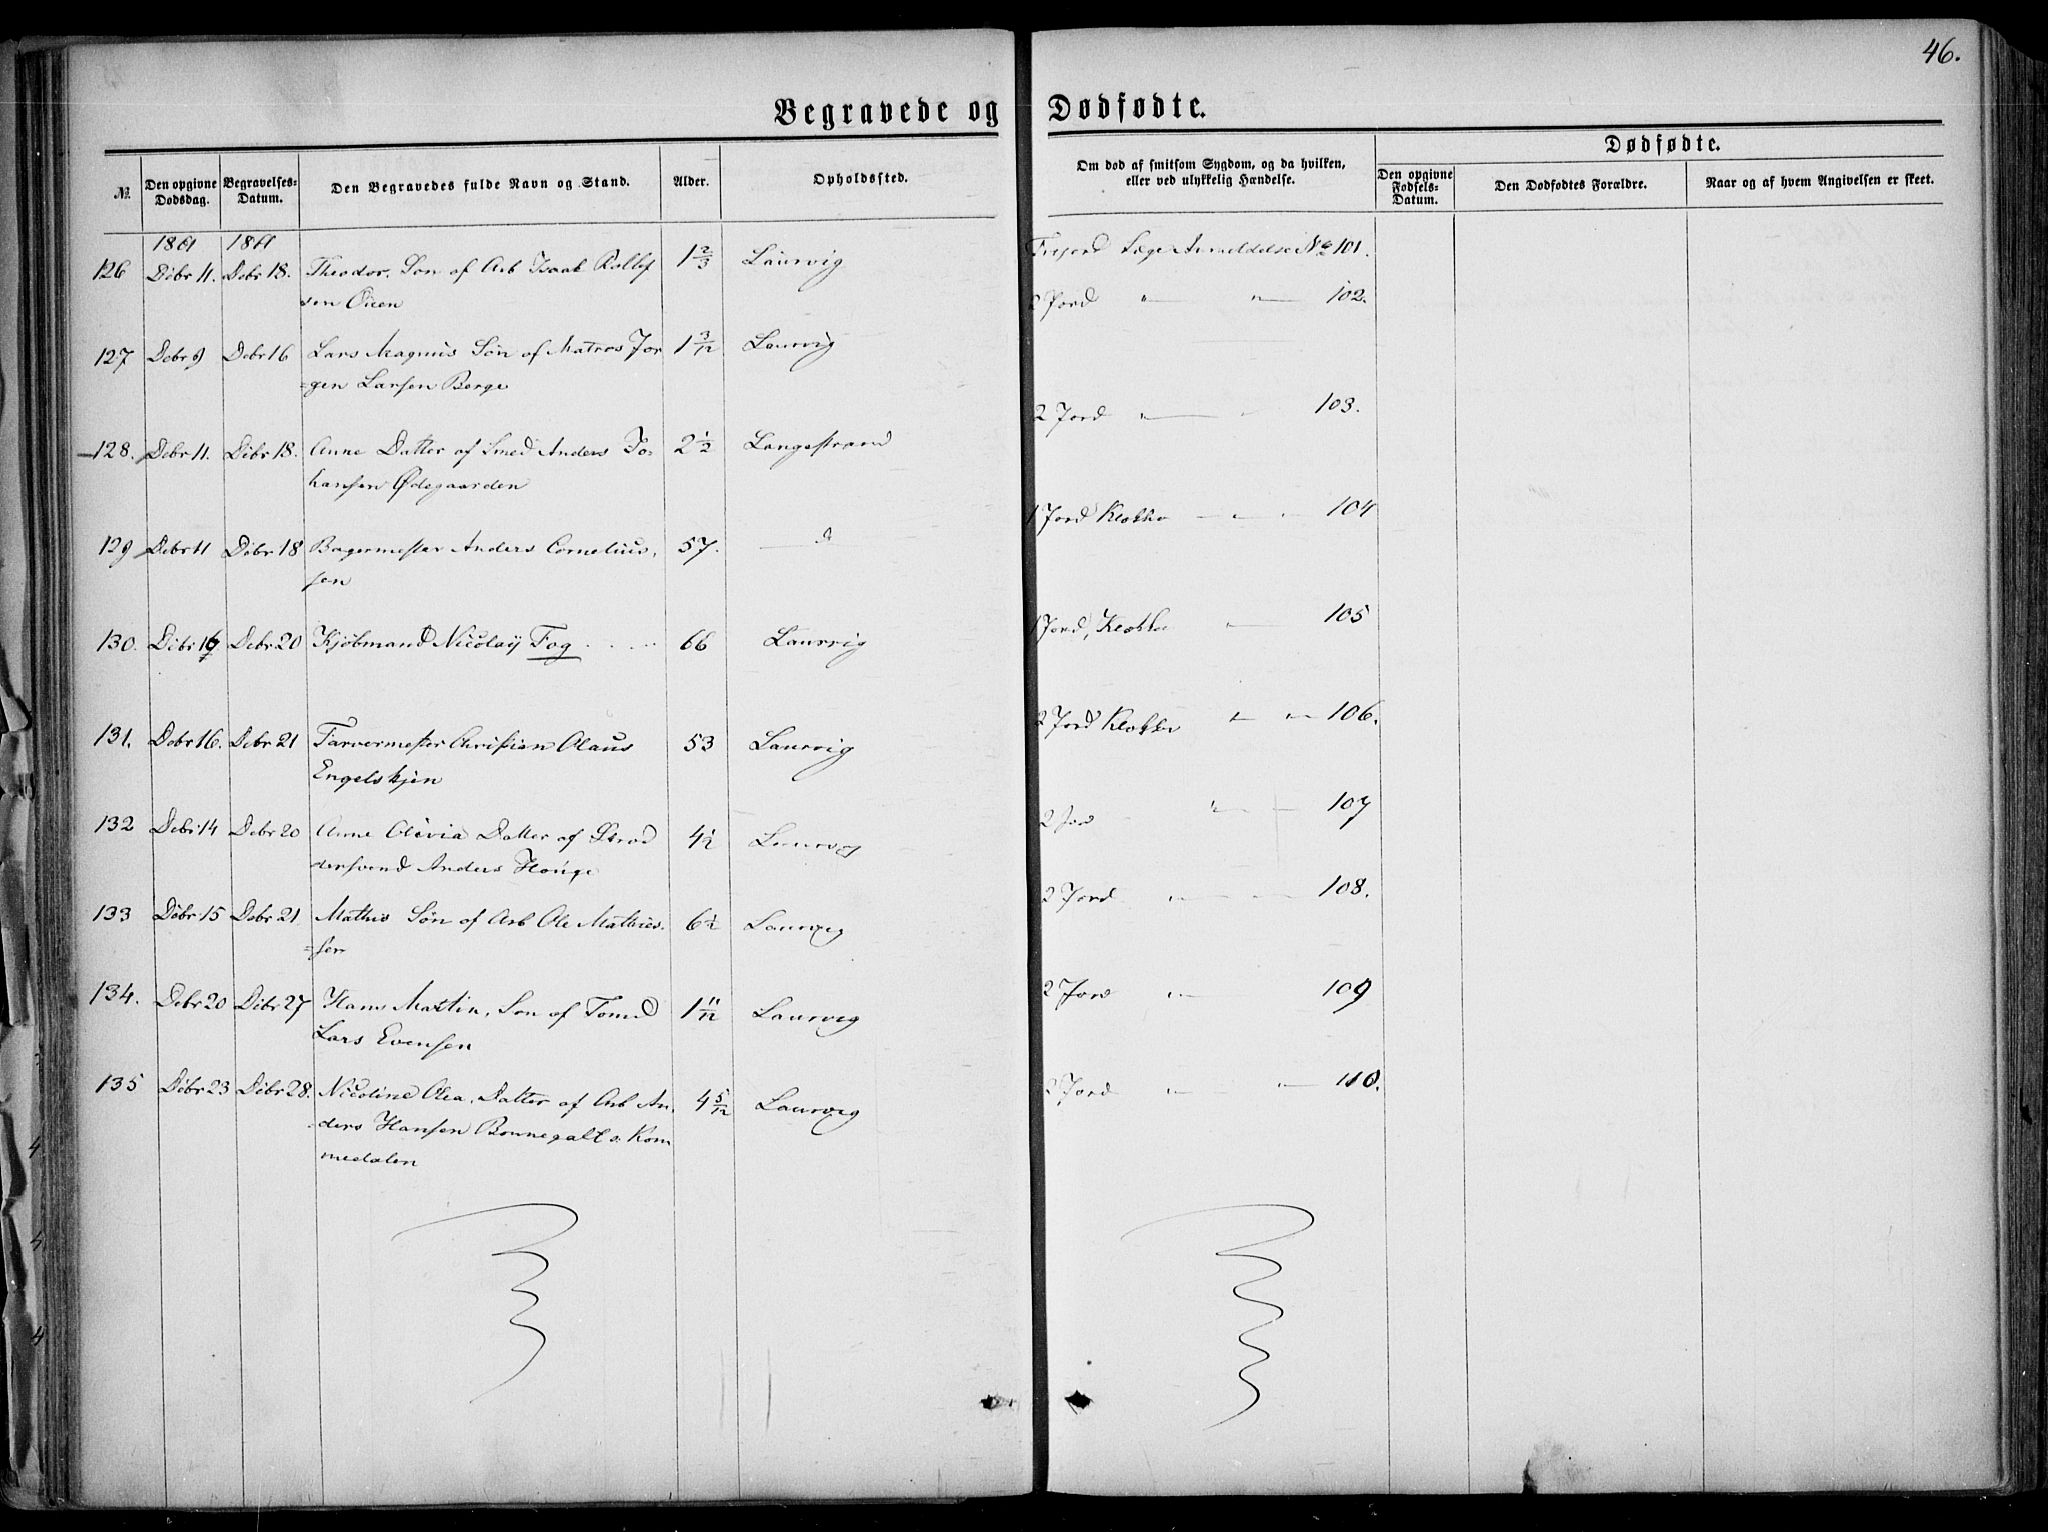 46.
Begravede og Dødfødte.
№
Den opgivne Dodsdag.
Begravelses-Datum.
Den Begravedes fulde Navn og Stand.
Alder.
Opholdssted.
Om død af smitsom Sygdom, og da hvilken, eller ved ulykkelig Hændelse.
Dødfødte.
Den opgivne Fødsels-Datum.
Den Dødfødtes Forældre.
Naar og af hvem Angivelsen er skeet.
1861 1861
126 Debr 11. Debr 18. Theodor, Søn af Arb Isaak Rollef 1 2/3 Laurvig
sen Øien
127 Debr 9 Debr 16 Lars Magnus Søn af Matros Jør 1 3/12 Laurvig
=gen Larsen Berge
128. Debr 11. Debr 18. Anne Datter af Smed Anders Jo- 2 1/2 Langestrand
hansen Ødegaarden
129 Debr 11 Debr 18 Bagermester Anders Cornelius, 57. — d
sen
130. Debr Debr 20 Kjøbmand Nicolay Fog 66 Laurvig
131. Debr 16. Debr 21 Farvermester Christian Olaus 53 Laurvig
Engelskjøn
132 Debr 14 Debr 20 Anne Olivia Datter af Skræd 4 1/2 Laurvig
dersvend Anders Houge
133 Debr 15 Debr 21 Mathis Søn af Arb Ole Mathies= 6 1/2 Laurvig
=sen
134. Debr 20 Debr 27 Hans Martin, Søn af Tømd 1 11/12 Laurvig
Lars Evensen
135 Debr 23 Debr 28. Nicoline Olea, Datter af Arb An, 4 5/12 Laurvig
=ders Hansen Bonnegalt Kom
medalen
Frijord Læge Anmeldelse No 101.
2 Jord " — " — 102.
2 Jord " — " 103.
1 Jord Klokke — " — 104
1 Jord, Klokke " — 105
2 Jord Klokke " — " — 106.
2 Jor " — — 107
2 Jord " — " — 108.
2 Jord " — 109
2 Jord " — " — 110.